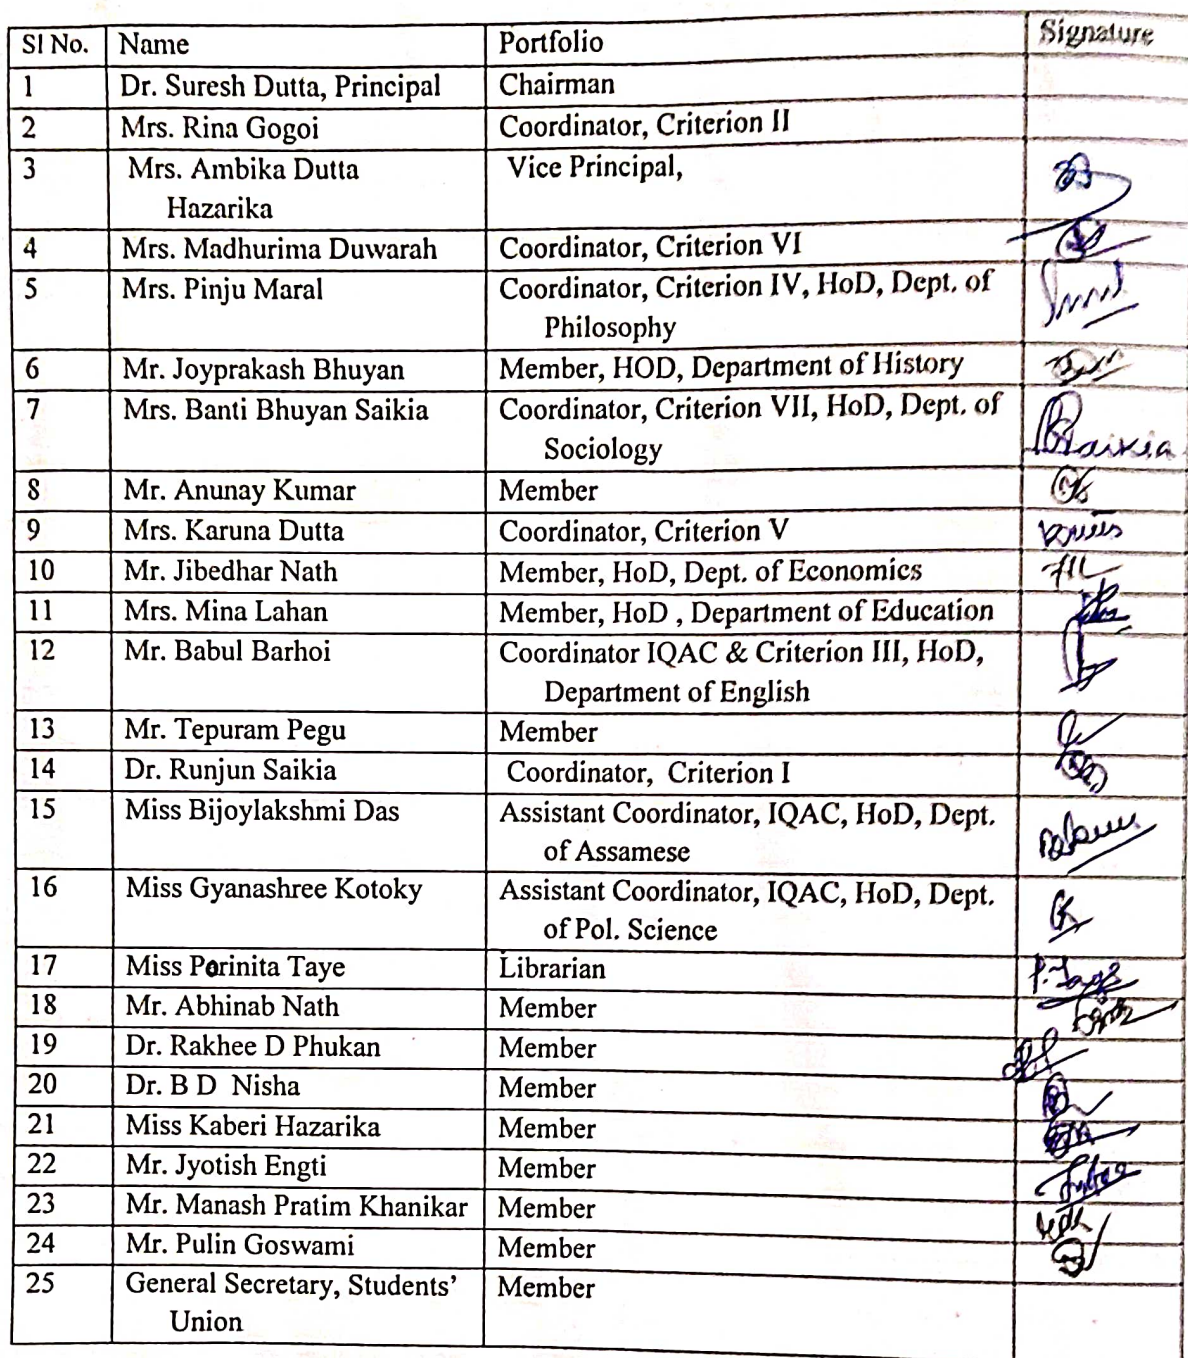 Sl No. Name Portfolio Signature
1 Dr. Suresh Dutta, Principal Chairman
2 Mrs. Rina Gogoi Coordinator, Criterion II
3 Mrs. Ambika Dutta Vice Principal,
Hazarika
4 Mrs. Madhurima Duwarah Coordinator, Criterion VI
5 Mrs. Pinju Maral Coordinator, Criterion IV, HoD, Dept. of
Philosophy
6 Mr. Joyprakash Bhuyan Member, HOD, Department of History
7 Mrs. Banti Bhuyan Saikia Coordinator, Criterion VII, HoD, Dept. of
Sociology BSaikia
8 Mr. Anunay Kumar Member
9 Mrs. Karuna Dutta Coordinator, Criterion V
10 Mr. Jibedhar Nath Member, HoD, Dept. of Economics
11 Mrs. Mina Lahan Member, HoD , Department of Education
12 Mr. Babul Barhoi Coordinator IQAC & Criterion III, HoD,
Department of English
13 Mr. Tepuram Pegu Member
14 Dr. Runjun Saikia Coordinator, Criterion I
15 Miss Bijoylakshmi Das Assistant Coordinator, IQAC, HoD, Dept.
of Assamese
16 Miss Gyanashree Kotoky Assistant Coordinator, IQAC, HoD, Dept.
of Pol. Science
17 Miss Porinita Taye Librarian P. Taye
18 Mr. Abhinab Nath Member
19 Dr. Rakhee D Phukan Member
20 Dr. B D Nisha Member
21 Miss Kaberi Hazarika Member
22 Mr. Jyotish Engti Member
23 Mr. Manash Pratim Khanikar Member
24 Mr. Pulin Goswami Member
25 General Secretary, Students' Member
Union